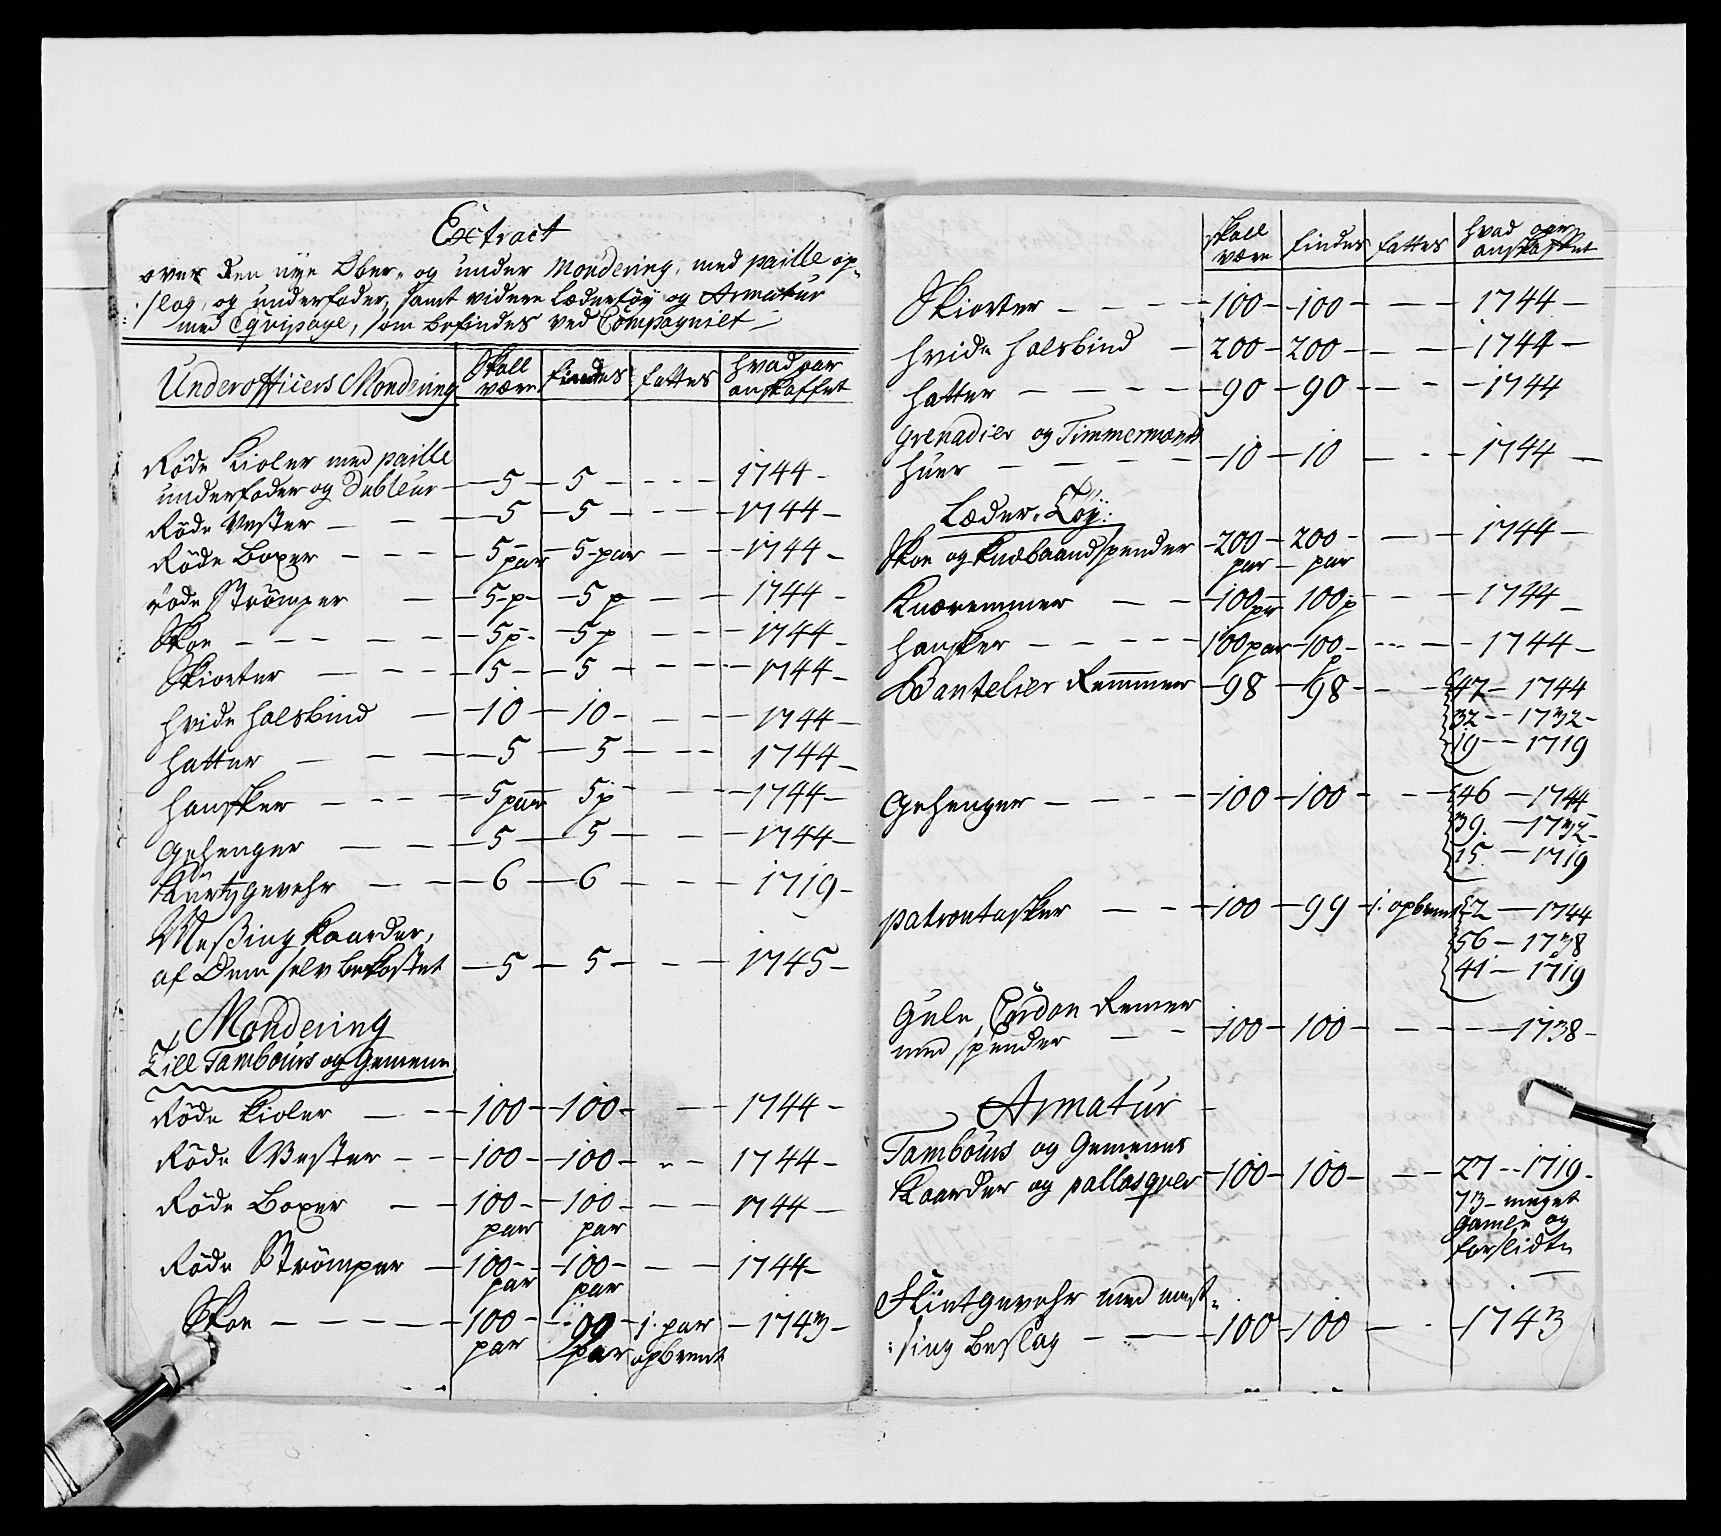 Extract
over den nye Ober- og under Mondering, med paille op-
:slag, og underfoder, samt videre Lædertöy og Armatur
med Equipage, som befindes ved Compagniet
Underofficiers Mondering | Skall være | findes | fattes | hvad aar anskaffet
Röde Kioler med paille
underfoder og Dubleur — 5 — 5 — — — 1744 —
Röde Vester — — 5 — 5 — — — 1744 —
Röde Boxer — — — 5 par — 5 par — — 1744 —
röde Strömper — 5 p — 5 p — — 1744 —
Skoe — — — — — 5 p — 5 p — — 1744 —
Skiorter — — — 5 — 5 — — — 1744 —
hvide halsbind — 10 — 10 — — — 1744 —
hatter — — 5 — 5 — — — 1744 —
hansker — — — 5 par 5 p — — 1744 —
Gehenger — — 5 — 5 — — — 1744 —
Kurtzgevehr — — 6 — 6 — — — 1719 —
Meßing Kaarder,
af Dem selv bekostet — 5 — 5 — — — 1745 —
Mondering
Till Tambours og Gemene
Röde Kioler — — 100 — 100 — — 1744 —
Röde Vester — — 100 — 100 — — — 1744 —
Röde Boxer — 100 — 100 — — — 1744 —
par par
Röde Strömper — 100 — 100 — — — 1744 —
par par
Skoe — — — — 100 — 99 — 1. par — 1743 —
par par opbrent
Skall være | findes | fattes | hvad aar anskaffet
Skiorter — — — 100 — 100 — — — 1744 —
hvide halsbind — 200 — 200 — — — 1744 —
hatter — — — 90 — 90 — — — 1744
Grenadier og Timmermænds
huer — — — — 10 — 10 — — — 1744 —
Læder-Töy:
Skoe og Knæbaandspender — 200 — 200 — — — 1744 —
par — par
Knæremmer — — 100 pr 100 p — — 1744 —
hansker — — — — 100 par — 100 p — — — 1744 —
Bantelier Remmer — 98 — 98 — — 47 — 1744
32 — 1732 —
19 — 1719
Gehenger — — — — 100 — 100 — — 46 — 1744
39. — 1732 —
15. — 1719
patrontasker — — 100 — 99 — 1. opbrent 2 — 1744
56 — 1738
41 — 1719
Gule Cordon Remer
med spender — — 100 — 100 — — — 1738 —
Armatur —
Tambours og Gemenes
Kaarder og pallasquer — 100 — 100 — — 27 — 1719 —
73 — meget
gamle og
forslidte
Flintgevehr med mes-
:sing Beslag — — 100 — 100 — — 1743